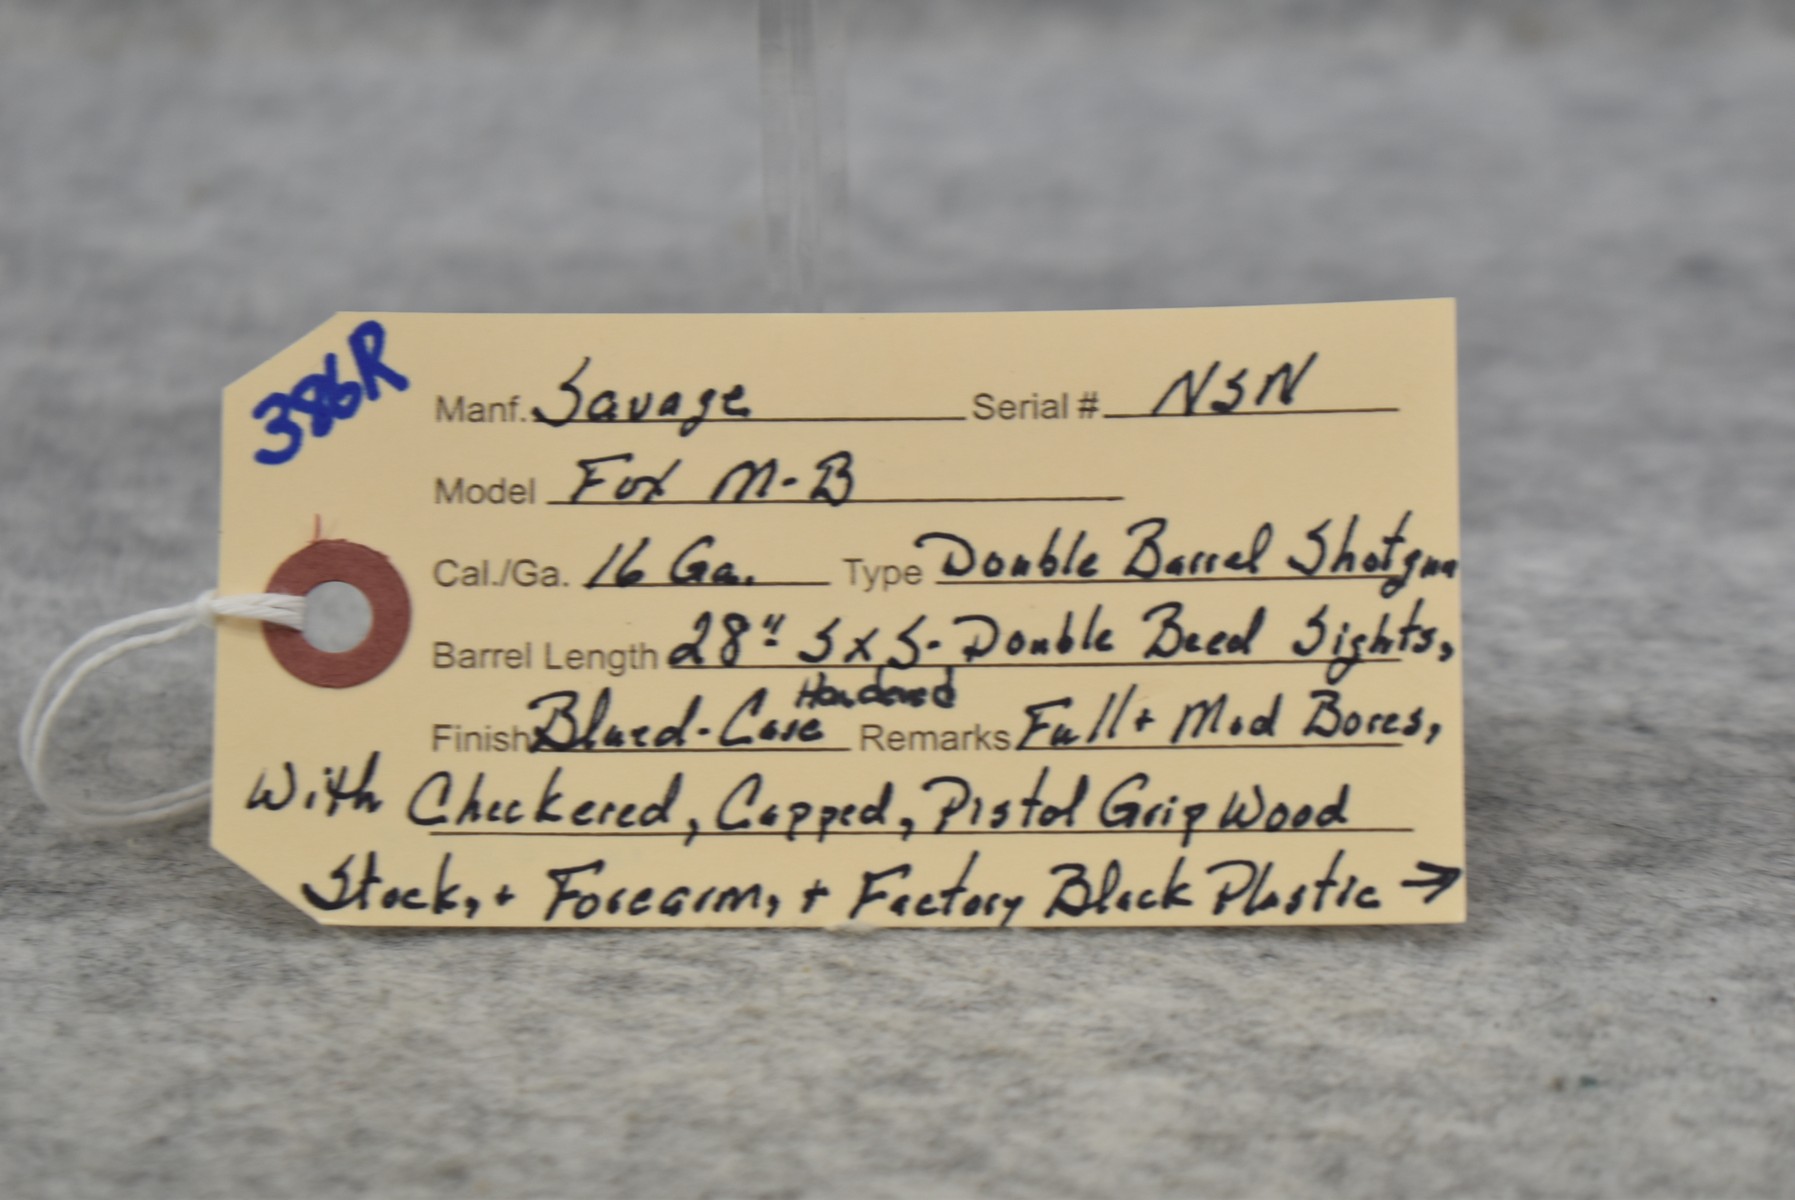 386R
Manf. Savage Serial # NSN
Model Fox M-B
Cal./Ga. 16 Ga. Type Double Barrel Shotgun
Barrel Length 28" SxS- Double Beed Sights,
Hardened
Finish Blued-Case Remarks Full + Mod Bores,
With Checkered, Capped, Pistol Grip Wood
Stock, + Forearm, + Factory Black Plastic →